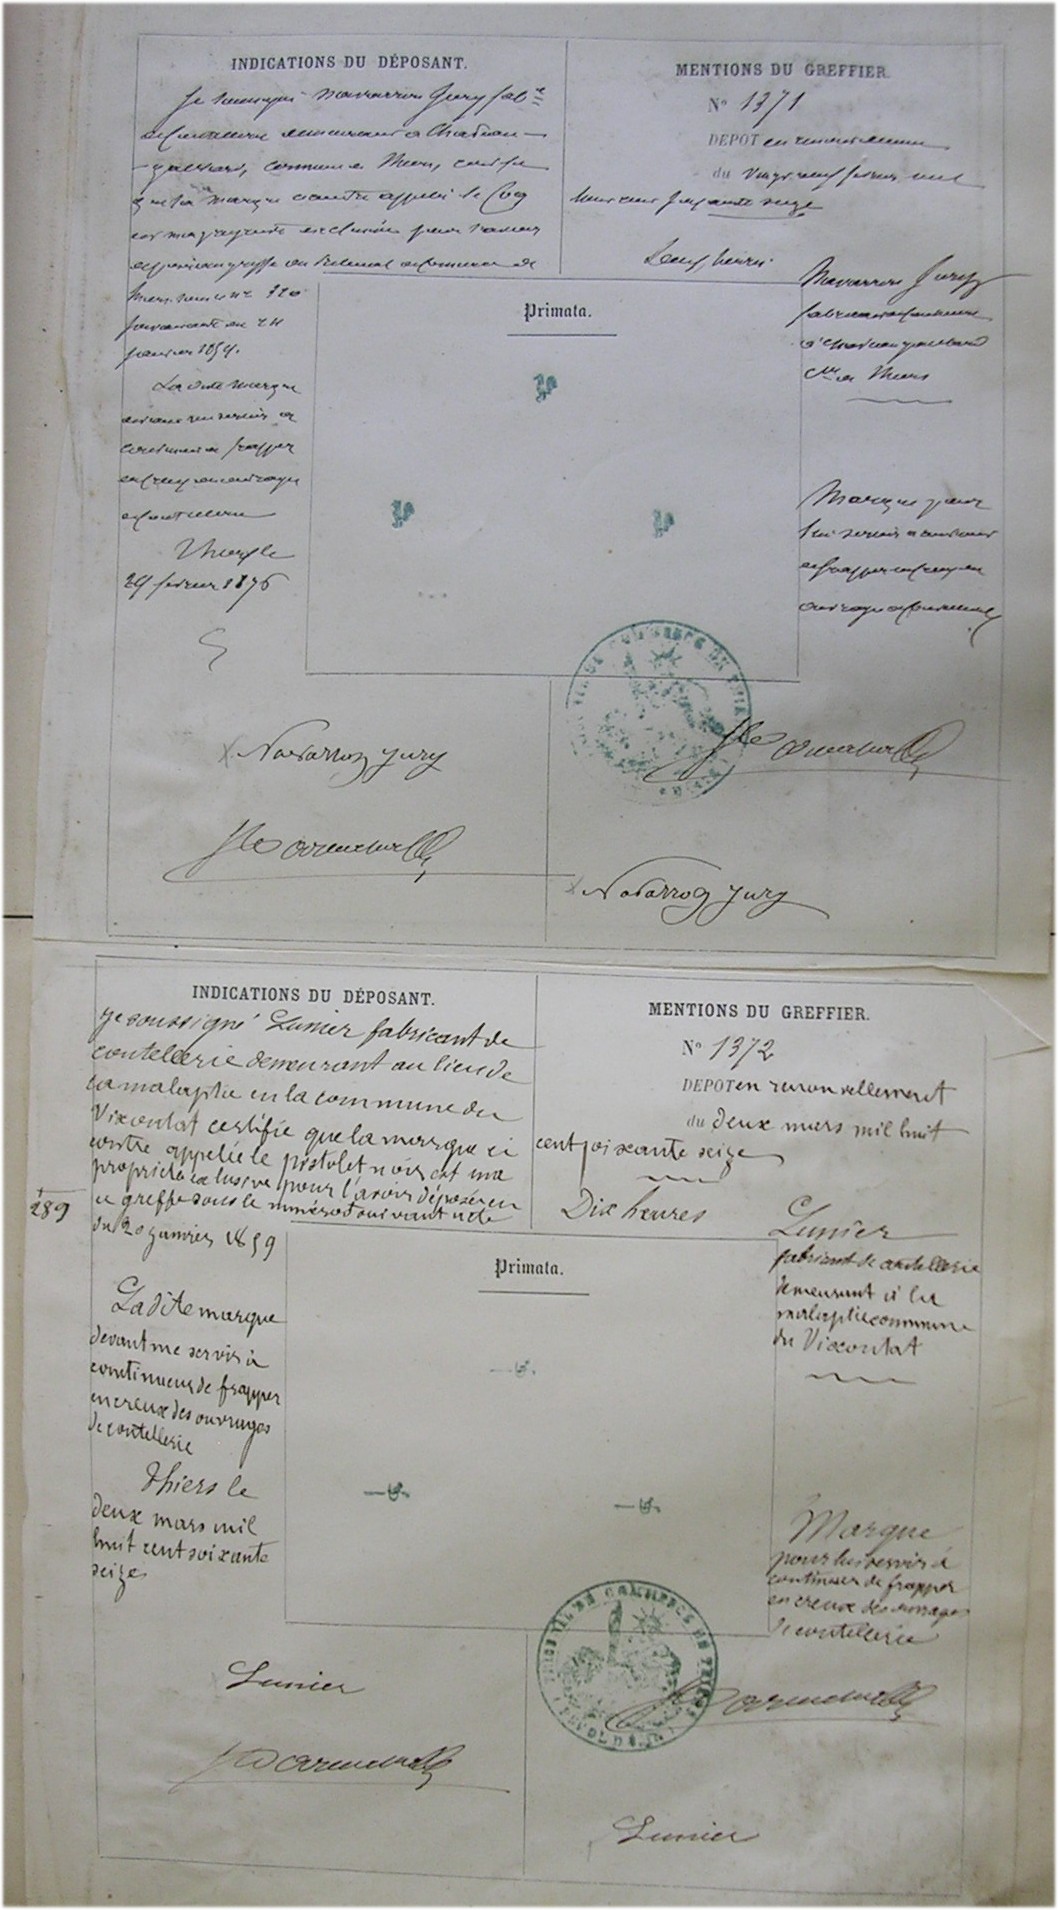 INDICATIONS DU DÉPOSANT.
Je soussigné Navarron Jury fab
de Coutellerie demeurant à Château
gaillard, commune de Thiers, certifie
que la marque ci contre appelée le Coq
est ma propriété exclusive pour l'avoir
déposée au greffe du Tribunal de Commerce de
Thiers sous le no
suivant du 24
janvier 1859.
La dite marque
devant me servir à
continuer de frapper
en creux des ouvrages
de coutellerie
Thiers le
29 février 1876
MENTIONS DU GREFFIER.
No 1371
DEPOT en renouvellement
du vingt neuf février mil
huit cent soixante seize
heures
Navarron Jury
fabricant de coutellerie
à Château gaillard
Cne de Thiers
Primata.
Marque pour
lui servir à continuer
de frapper en creux des
ouvrages de coutellerie
Navarron Jury
Navarron Jury
INDICATIONS DU DÉPOSANT.
Je soussigné Lunier fabricant de
coutellerie demeurant au lieu de
la malaptie en la commune du
Viscontat certifie que la marque ci
contre appelée le pistolet noir est ma
propriété exclusive pour l'avoir déposée en
ce greffe sous le numéro suivant
289
du 20 janvier 1859
La dite marque
devant me servir à
continuer de frapper
en creux des ouvrages
de coutellerie
Thiers le
deux mars mil
huit cent soixante
seize
MENTIONS DU GREFFIER.
No 1372
DEPOT en renouvellement
du deux mars mil huit
cent soixante seize
Dix heures
Lunier
fabricant de coutellerie
demeurant à la
malaptie commune
du Viscontat
Primata.
Marque
pour lui servir à
continuer de frapper
en creux des ouvrages
de coutellerie
TRIBUNAL DE COMMERCE DE THIERS
Lunier
Lunier